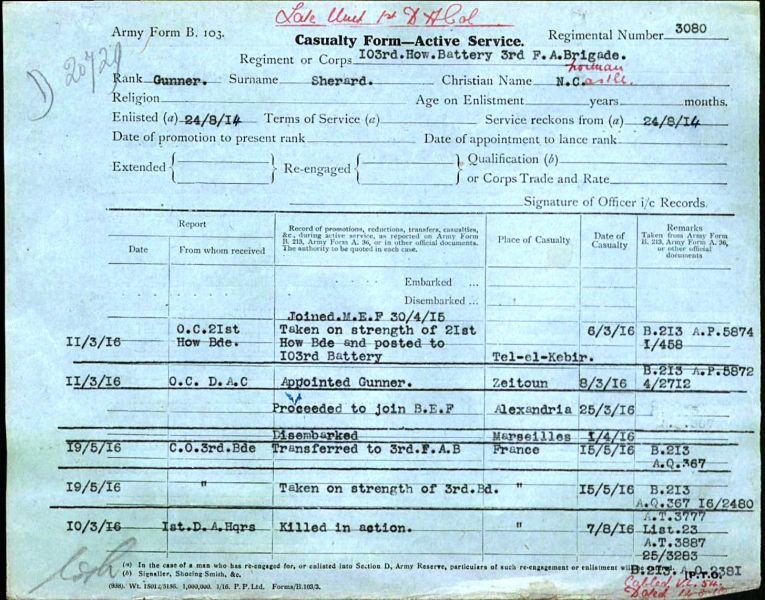 Late Unit 1st D A Col
Army Form B. 103.
Regimental Number 3080
Casualty Form—Active Service.
Regiment or Corps 103rd.How.Battery 3rd F.A.Brigade.
D 20729
Rank Gunner. Surname Sherard. Christian Name N.C. Norman Castle.
Religion Age on Enlistment years months.
Enlisted (a) 24/8/14 Terms of Service (a) Service reckons from (a) 24/8/14
Date of promotion to present rank Date of appointment to lance rank
Extended Re-engaged Qualification (b)
or Corps Trade and Rate
Signature of Officer i/c Records.
Report
Date From whom received
Record of promotions, reductions, transfers, casualties,
&c., during active service, as reported on Army Form
B. 213, Army Form A. 36, or in other official documents.
The authority to be quoted in each case.
Place of Casualty
Date of
Casualty
Remarks
Taken from Army Form
B. 213, Army Form A. 36,
or other official
documents
Embarked ...
Disembarked ...
Joined.M.E.F 30/4/15
O.C.21st Taken on strength of 21st 6/3/16 B.213 A.P.5874
11/3/16 How Bde. How Bde and posted to 1/458
103rd Battery Tel-el-Kebir.
B.213 A.P.5872
11/3/16 O.C. D.A.C Appointed Gunner. Zeitoun 8/3/16 4/2712
Proceeded to join B.E.F Alexandria 25/3/16
Disembarked Marseilles 1/4/16
19/5/16 C.O.3rd.Bde Transferred to 3rd.F.A.B France 15/5/16 B.213
A.Q.367
19/5/16 " Taken on strength of 3rd.Bd. " 15/5/16 B.213
A.Q.367 16/2480
A.T.3777
10/3/16 1st.D.A.Hqrs Killed in action. " 7/8/16 List.23
A.T.3887
25/3283
(a) In the case of a man who has re-engaged for, or enlisted into Section D, Army Reserve, particulars of such re-engagement or enlistment will be
B.213. A.Q.2381
(b) Signaller, Shoeing Smith, &c.
[P.T.O.
(938). Wt. 15012/5186. 1,000,000. 1/16. P. P. Ltd. Forms/B.103/3.
Cabled
Dated